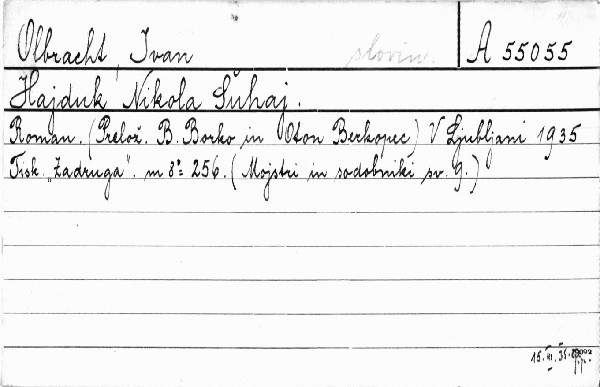 Olbracht, Ivan slovin. A 55055
Hajduk Nikola Šuhaj.
Roman. (Prelož. B. Borko in Oton Berkopec) V Ljubljani 1935
Tisk. „Zadruga". m 8° 256. (Mojstri in sodobniki sv. 9.)